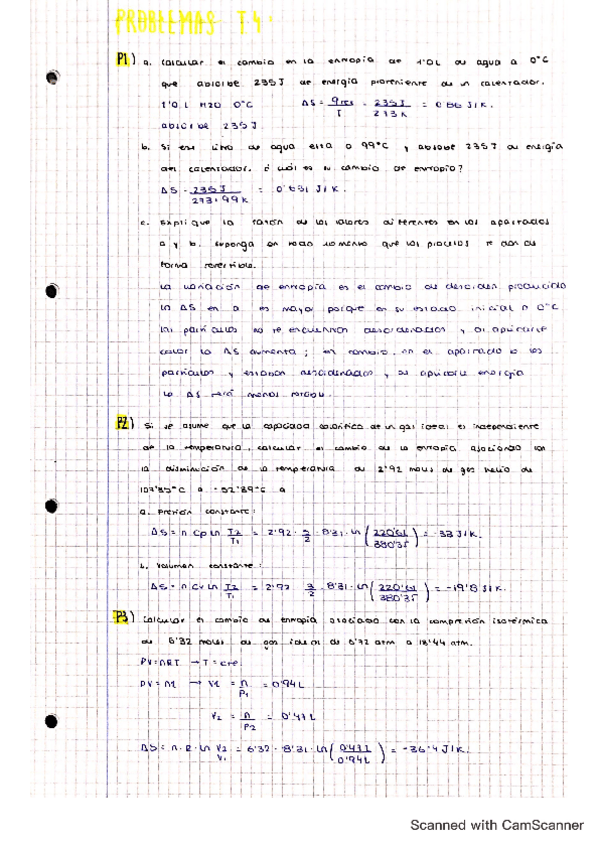 PROBLEMAS T.4.
P1) a. Calcular el cambio en la entropía de 1'0L de agua a 0°C
que absorbe 235J de energía proveniente de un calentador.
1'0 L H2O 0°C ΔS = qrev / T = 235J / 273K = 0'86 J/K.
absorbe 235J
b. Si ese litro de agua está a 99°C y absorbe 235J de energía
del calentador. ¿Cuál es su cambio de entropía?
ΔS = 235J / 273+99K = 0'631 J/K.
c. Explique la razón de los valores diferentes en los apartados
a y b. Suponga en todo momento que los procesos se dan de
forma reversible.
La variación de entropía es el cambio de desorden producido
La ΔS en a es mayor porque en su estado inicial a 0°C
las partículas no se encuentran desordenadas y al aplicarle
calor la ΔS aumenta; en cambio, en el apartado b las
partículas ya estaban desordenadas y, al aplicarle energía
la ΔS será menos notable.
P2) Si se asume que la capacidad calorífica de un gas ideal es independiente
de la temperatura, calcular el cambio de la entropía asociado con
la disminución de la temperatura de 2'92 moles de gas helio de
107'35°C a -52'39°C a
a. presión constante:
ΔS = n Cp Ln T2/T1 = 2'92 · 5/2 · 8'31 · Ln (220'61 / 380'35) = -33 J/K.
b. Volumen constante:
ΔS = n Cv Ln T2/T1 = 2'92 3/2 · 8'31 · Ln (220'61 / 380'35) = -19'8 J/K.
P3) Calcular el cambio de entropía asociado con la compresión isotérmica
de 6'32 moles de gas ideal de 6'72 atm a 13'44 atm.
PV = nRT → T = cte.
PV = n → V1 = n / P1 = 0'94L
V2 = n / P2 = 0'47L
ΔS = n · R · Ln V2/V1 = 6'32 · 8'31 · Ln (0'47L / 0'94L) = -36'4 J/K.
Scanned with CamScanner